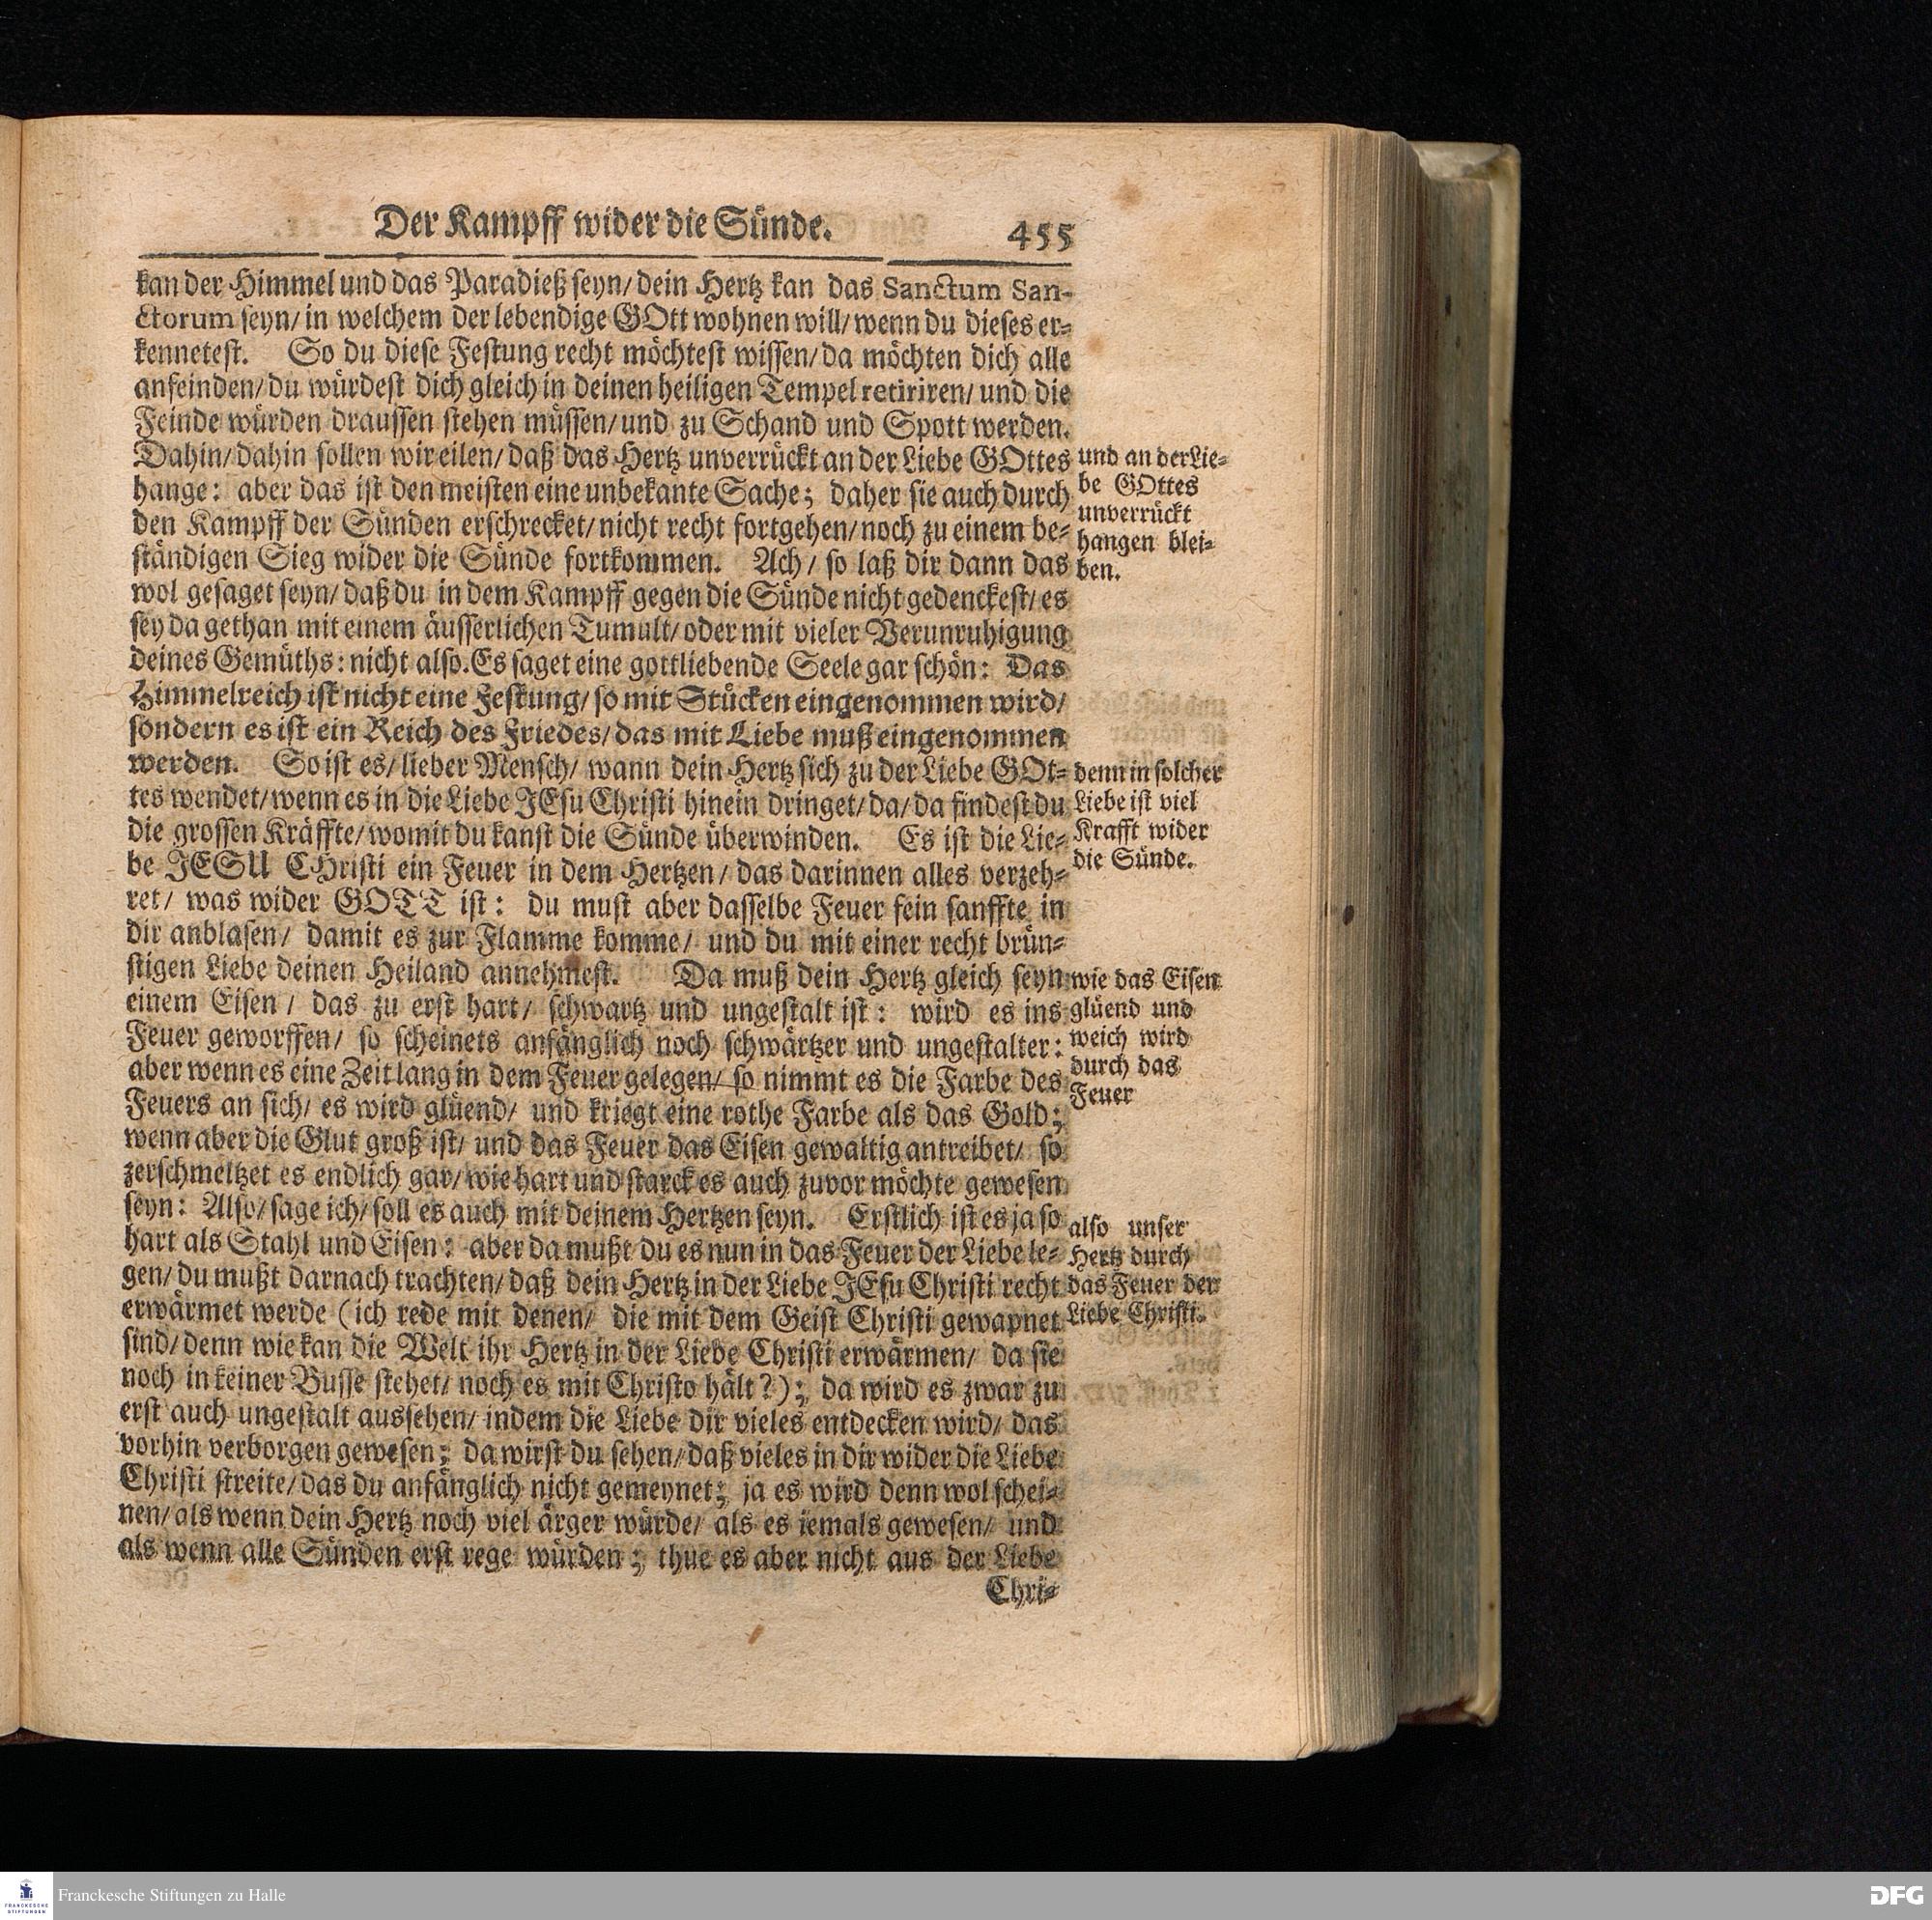 Der Kampff wider die Sünde. 455
kan der Himmel und das Paradieß seyn/ dein Hertz kan das Sanctum San-
ctorum seyn/ in welchem der lebendige GOtt wohnen will/ wenn du dieses er-
kennetest. So du diese Festung recht möchtest wissen/ da möchten dich alle
anfeinden/ du würdest dich gleich in deinen heiligen Tempel retiriren/ und die
Feinde würden draussen stehen müssen/ und zu Schand und Spott werden.
Dahin/ dahin sollen wir eilen/ daß das Hertz unverrückt an der Liebe GOttes
hange: aber das ist den meisten eine unbekante Sache; daher sie auch durch
den Kampff der Sünden erschrecket/ nicht recht fortgehen/ noch zu einem be-
ständigen Sieg wider die Sünde fortkommen. Ach/ so laß dir dann das
wol gesaget seyn/ daß du in dem Kampff gegen die Sünde nicht gedenckest/ es
sey da gethan mit einem äusserlichen Tumult/ oder mit vieler Verunruhigung
deines Gemüths: nicht also. Es saget eine gottliebende Seele gar schön: Das
Himmelreich ist nicht eine Festung/ so mit Stücken eingenommen wird/
sondern es ist ein Reich des Friedes/ das mit Liebe muß eingenommen
werden. So ist es/ lieber Mensch/ wann dein Hertz sich zu der Liebe GOt-
tes wendet/ wenn es in die Liebe JEsu Christi hinein dringet/ da/ da findest du
die grossen Kräffte/ womit du kanst die Sünde überwinden. Es ist die Lie-
be JESU CHristi ein Feuer in dem Hertzen/ das darinnen alles verzeh-
ret/ was wider GOTT ist: du must aber dasselbe Feuer fein sanffte in
dir anblasen/ damit es zur Flamme komme/ und du mit einer recht brün-
stigen Liebe deinen Heiland annehmest. Da muß dein Hertz gleich seyn
einem Eisen/ das zu erst hart/ schwartz und ungestalt ist: wird es ins
Feuer geworffen/ so scheinets anfänglich noch schwärtzer und ungestalter:
aber wenn es eine Zeit lang in dem Feuer gelegen/ so nimmt es die Farbe des
Feuers an sich/ es wird glüend/ und kriegt eine rothe Farbe als das Gold;
wenn aber die Glut groß ist/ und das Feuer das Eisen gewaltig antreibet/ so
zerschmeltzet es endlich gar/ wie hart und starck es auch zuvor möchte gewesen
seyn: Also/ sage ich/ soll es auch mit deinem Hertzen seyn. Erstlich ist es ja so
hart als Stahl und Eisen: aber da mußt du es nun in das Feuer der Liebe le-
gen/ du mußt darnach trachten/ daß dein Hertz in der Liebe JEsu Christi recht
erwärmet werde (ich rede mit denen/ die mit dem Geist Christi gewapnet
sind/ denn wie kan die Welt ihr Hertz in der Liebe Christi erwärmen/ da sie
noch in keiner Busse stehet/ noch es mit Christo hält?); da wird es zwar zu
erst auch ungestalt aussehen/ indem die Liebe dir vieles entdecken wird/ das
vorhin verborgen gewesen; da wirst du sehen/ daß vieles in dir wider die Liebe
Christi streite/ das du anfänglich nicht gemeynet; ja es wird denn wol schei-
nen/ als wenn dein Hertz noch viel ärger würde/ als es iemals gewesen/ und
als wenn alle Sünden erst rege würden; thue es aber nicht aus der Liebe
Chri-
und an der Lie-
be GOttes
unverrückt
hangen blei-
ben.
denn in solcher
Liebe ist viel
Krafft wider
die Sünde.
wie das Eisen
glüend und
weich wird
durch das
Feuer
also unser
Hertz durch
das Feuer der
Liebe Christi.
FRANCKESCHE
STIFTUNGEN
Franckesche Stiftungen zu Halle
DFG